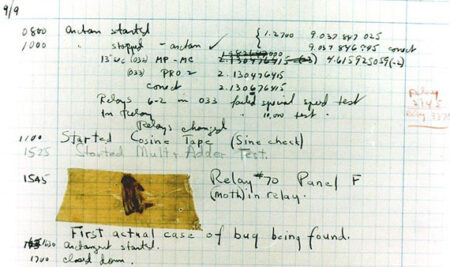 9/9
0800 Antan started { 1.2700 9.037 847 025
1000 " stopped - antan ✓ 9.037 846 995 conect
13"uc (032) MP - MC 2.130476415 (-3) 4.615925059(-2)
(033) PRO 2 2.130476415
conect 2.130676415
Relays 6-2 in 033 failed special speed test
in relay " 10,000 test .
Relay
2145
Relay 3370
Relays changed
1100 Started Cosine Tape (Sine check)
1525 Started Mult + Adder Test.
1545 Relay #70 Panel F
(moth) in relay.
First actual case of bug being found.
1630 antangent started.
1700 closed down.